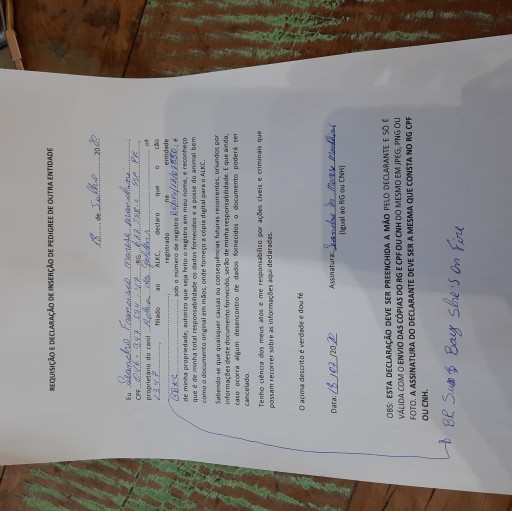 REQUISIÇÃO E DECLARAÇÃO DE INSERÇÃO DE PEDIGREE DE OUTRA ENTIDADE
18 de Julho 2020
Eu
CPF RG PR
proprietário do canil nº
1347, filiado ao ALKC, declaro que o cão
registrado na entidade
sob o número de registro e
de minha propriedade, autorizo que seja feito o registro em meu nome, e reconheço
que é de minha total responsabilidade os dados fornecidos e a posse do animal bem
como o documento original em mãos, onde forneço a cópia digital para o ALKC.
Sabendo-se que quaisquer causas ou consequências futuras recorrentes, oriundos por
informações deste documento fornecido, serão de minha responsabilidade. E que ainda,
caso ocorra algum desencontro de dados fornecidos o documento poderá ser
cancelado.
Tenho ciência dos meus atos e me responsabilizo por ações cíveis e criminais que
possam recorrer sobre as informações aqui declaradas.
O acima descrito é verdade e dou fé
Data: 18 /07 /2020 Assinatura:
(Igual ao RG ou CNH)
OBS: ESTA DECLARAÇÃO DEVE SER PREENCHIDA A MÃO PELO DECLARANTE E SÓ É
VÁLIDA COM O ENVIO DAS CÓPIAS DO RG E CPF OU CNH DO MESMO EM JPEG, PNG OU
FOTO. A ASSINATURA DO DECLARANTE DEVE SER A MESMA QUE CONSTA NO RG CPF
OU CNH.
BR Bay She's On Fire